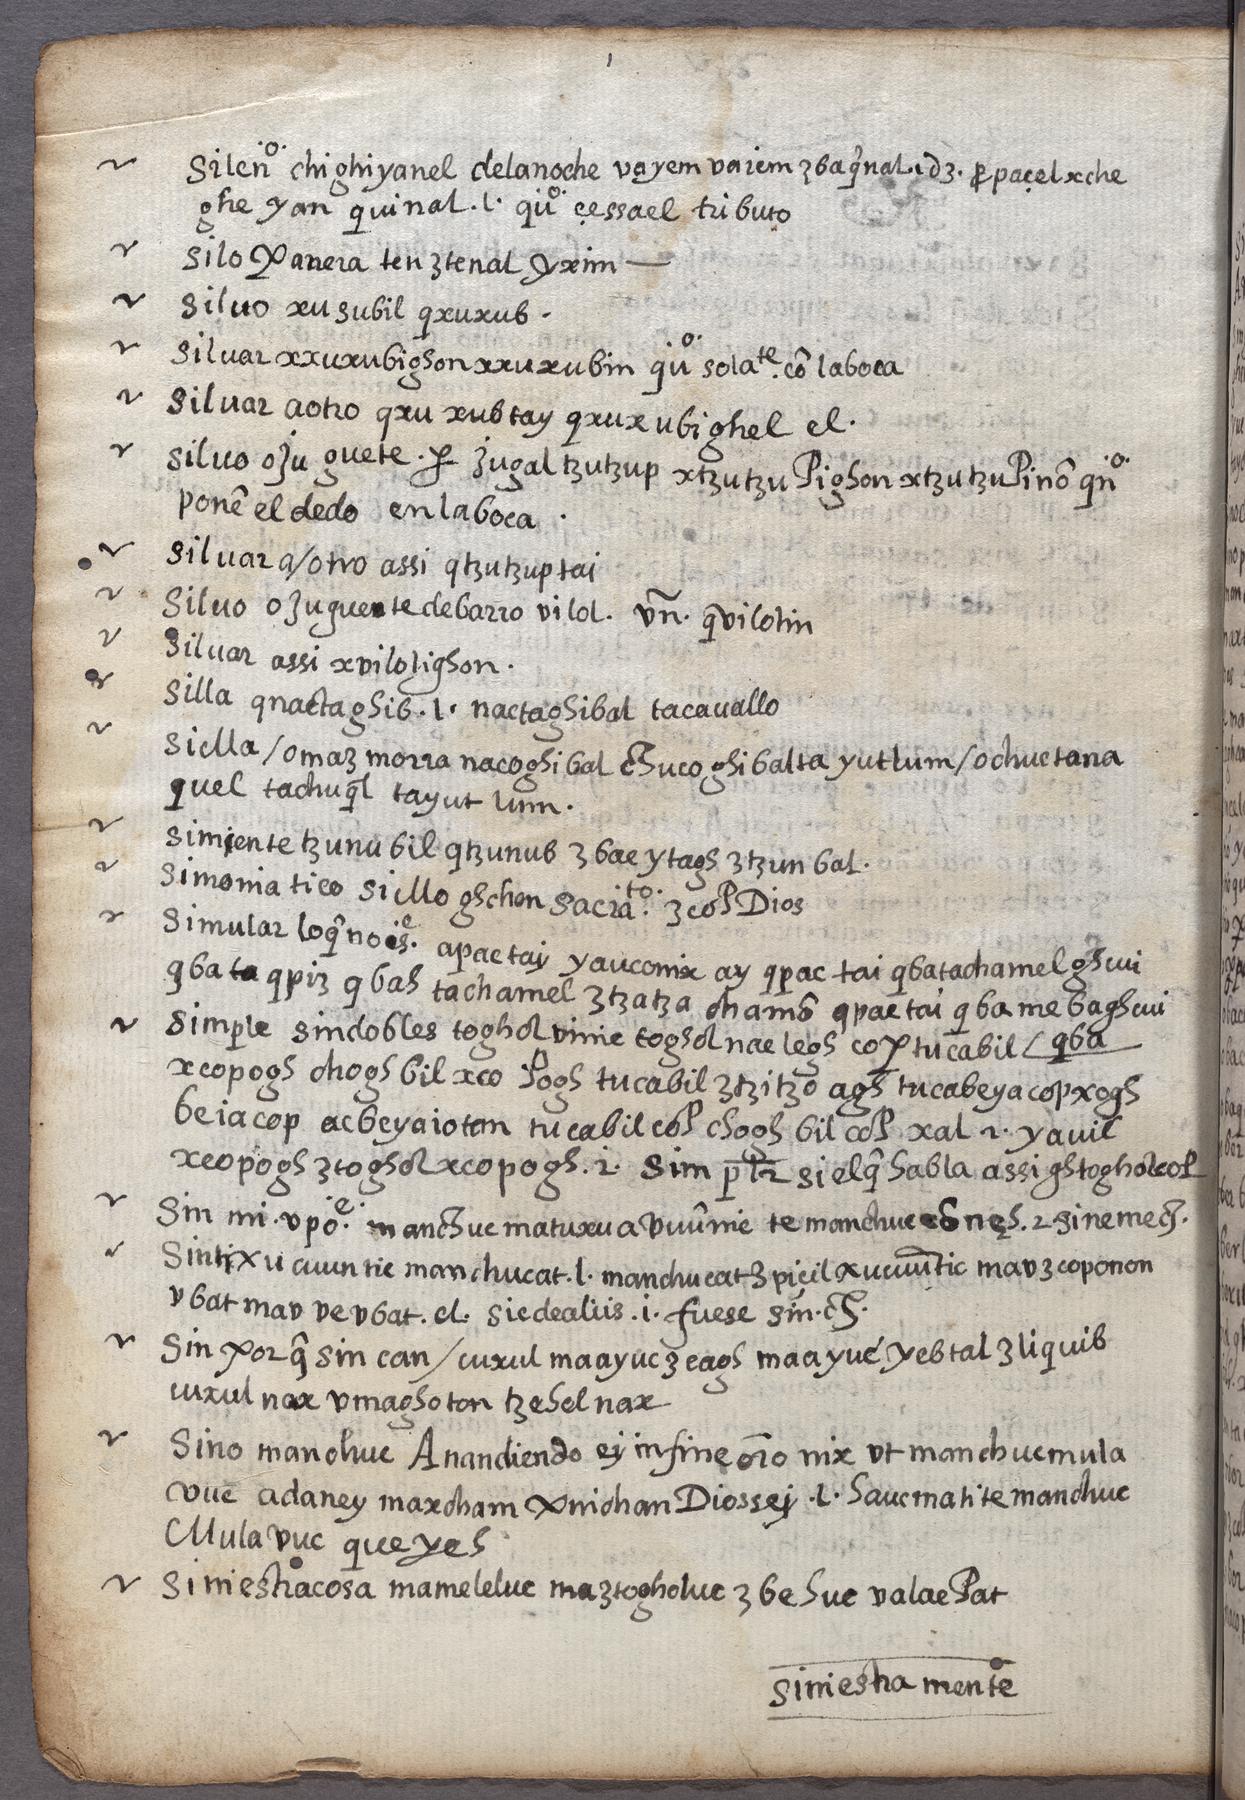 Silen͞io. chighiyanel delanoche vayem vaiem ʒbaq̃nal. idʒ. ꝑ paçel xche
ghe yan quinal .l. qũo. çessael tributo
Silo Panera ten ʒtenal yxim —
Siluo xu subil qxuxub.
Siluar xxuxubighon xxuxubin qũo. solate. cõ laboca
Siluar aotro qxu xubtay qxuxubighel el.
Siluo oJu guete. P Jugal tʒutʒup xtʒutʒuPighon xtʒutʒuPinõ qñ͞o.
ponẽ el dedo en laboca.
Siluar a/otro assi qtʒutʒuptai
Siluo oJuguete debarro vilol. vñ. q̃vilolin
Siluar assi xvilolighon.
Silla qnactaghib .l. nactaghibal tacauallo
Siella / omaʒ morra nacoghibal chuco ghibalta yutlum / ochuc tana
quel tachuq̃l tayut lum.
Simiente tʒunubil qtʒunub ʒbae ytagh ʒtʒunbal.
Simoniatico siello ghchon Sacra.to ʒcoP Dios
Simular loq̃no es. apactay yauconix ay qpac tai qbatachamel ghcui
qba ta qpiʒ qbah tachamel ʒtʒatʒa chamõ qpactai qba me baghcui
Simple sindobles toghol vinic toghol nae legh coP tucabil / qba
xcopogh chogh bil xco Pogh tucabil ʒtʒitʒo agh tucabeyacop xogh
beiacop acbeyaioton tucabil coP chogh bil coP xal 2. yauil
xcopogh ʒtoghol xcopogh. 2. Simptr si elq̃ habla assi ghtogholcoP
Sin mi. vpõe. manchuc matuxu avuũnic te manchuc
Sintixu cuuntic manchucat .l. manchucat ʒpiçil xucuuntic mavʒcoponon
vbat mav ve vbat. el. sicdealiis .i. fuese sin. ch.
Sin Porq̃ sin can / cuxul maayuc ʒeagh maayuc yebtal ʒliquib
cuxul nax vmaghoton tʒehel nax
Sino manchuc Anandiendo ej infine õro nix vt manchucmula
vuc adaney maxcham xnichan Diossej .l. haucmatite manchuc
Mula vuc queyeh
Siniestracosa mamelelue maʒtogholuc ʒbehuc valaePat
Siniestramente